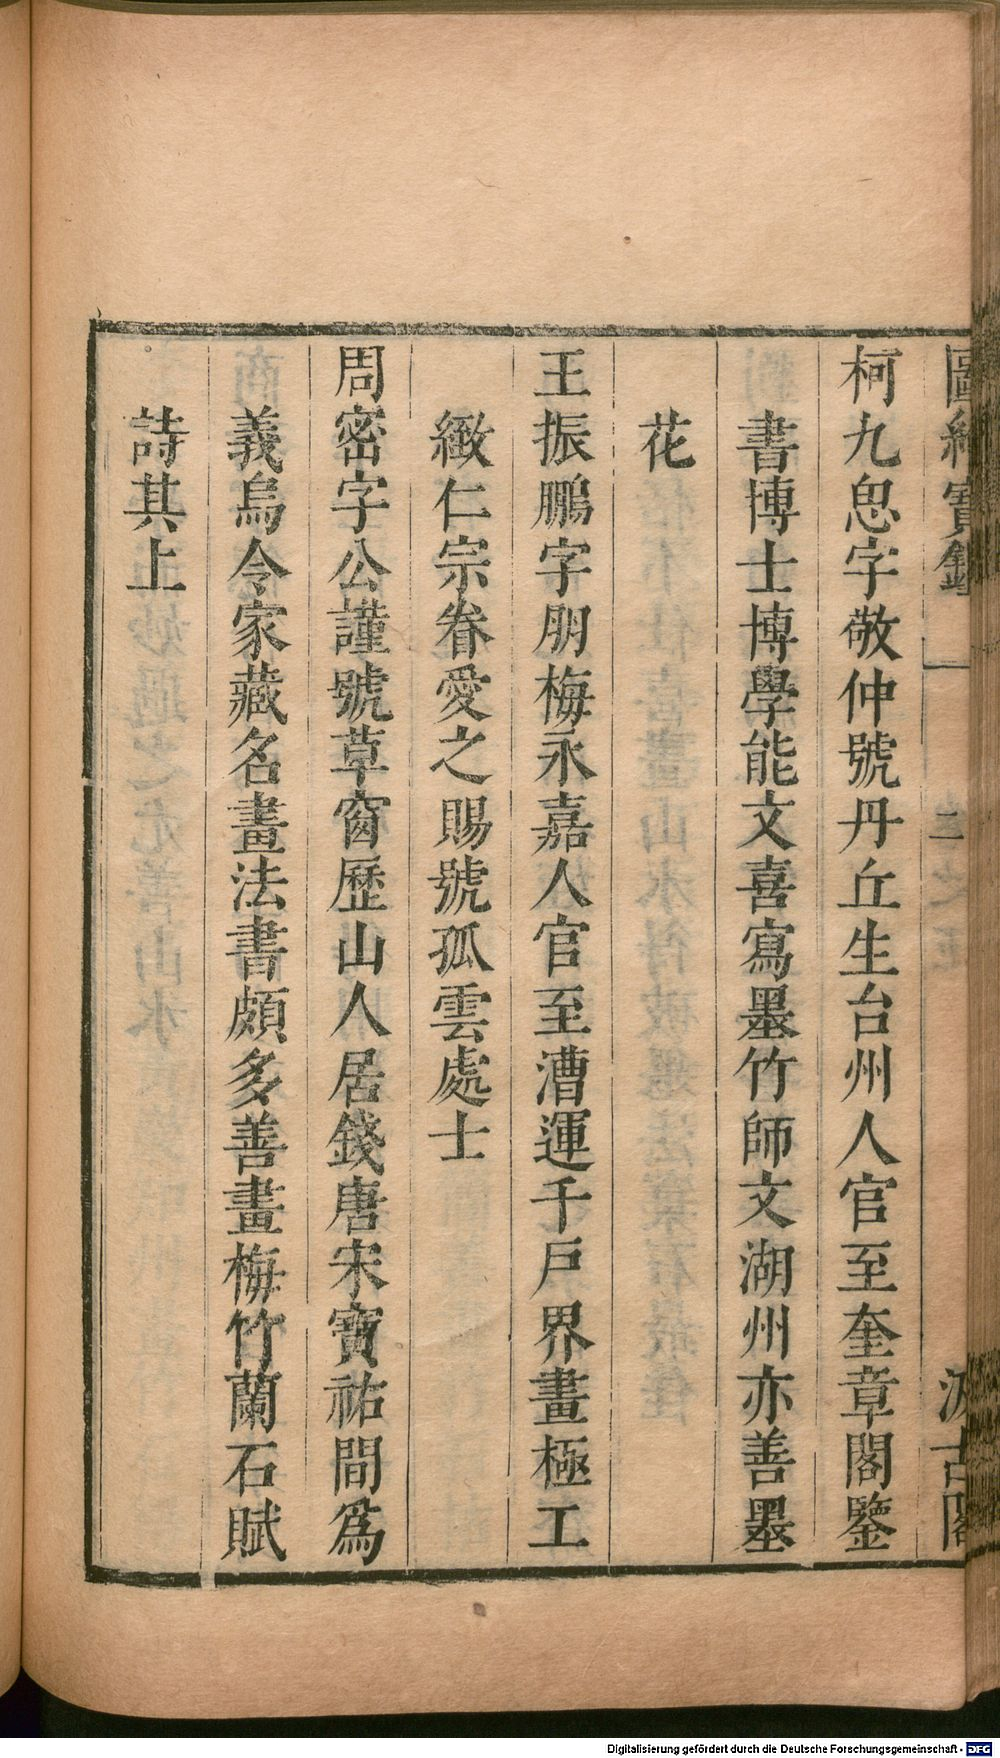 圖繪寶鑑
二
汲古閣
柯九思字敬仲號丹丘生台州人官至奎章閣鑒
書博士博學能文喜寫墨竹師文湖州亦善墨
花
王振鵬字朋梅永嘉人官至漕運千戶界畫極工
緻仁宗眷愛之賜號孤雲處士
周密字公謹號草窗歷山人居錢唐宋寶祐間爲
義烏令家藏名畫法書頗多善畫梅竹蘭石賦
詩其上
Digitalisierung gefördert durch die Deutsche Forschungsgemeinschaft - DFG